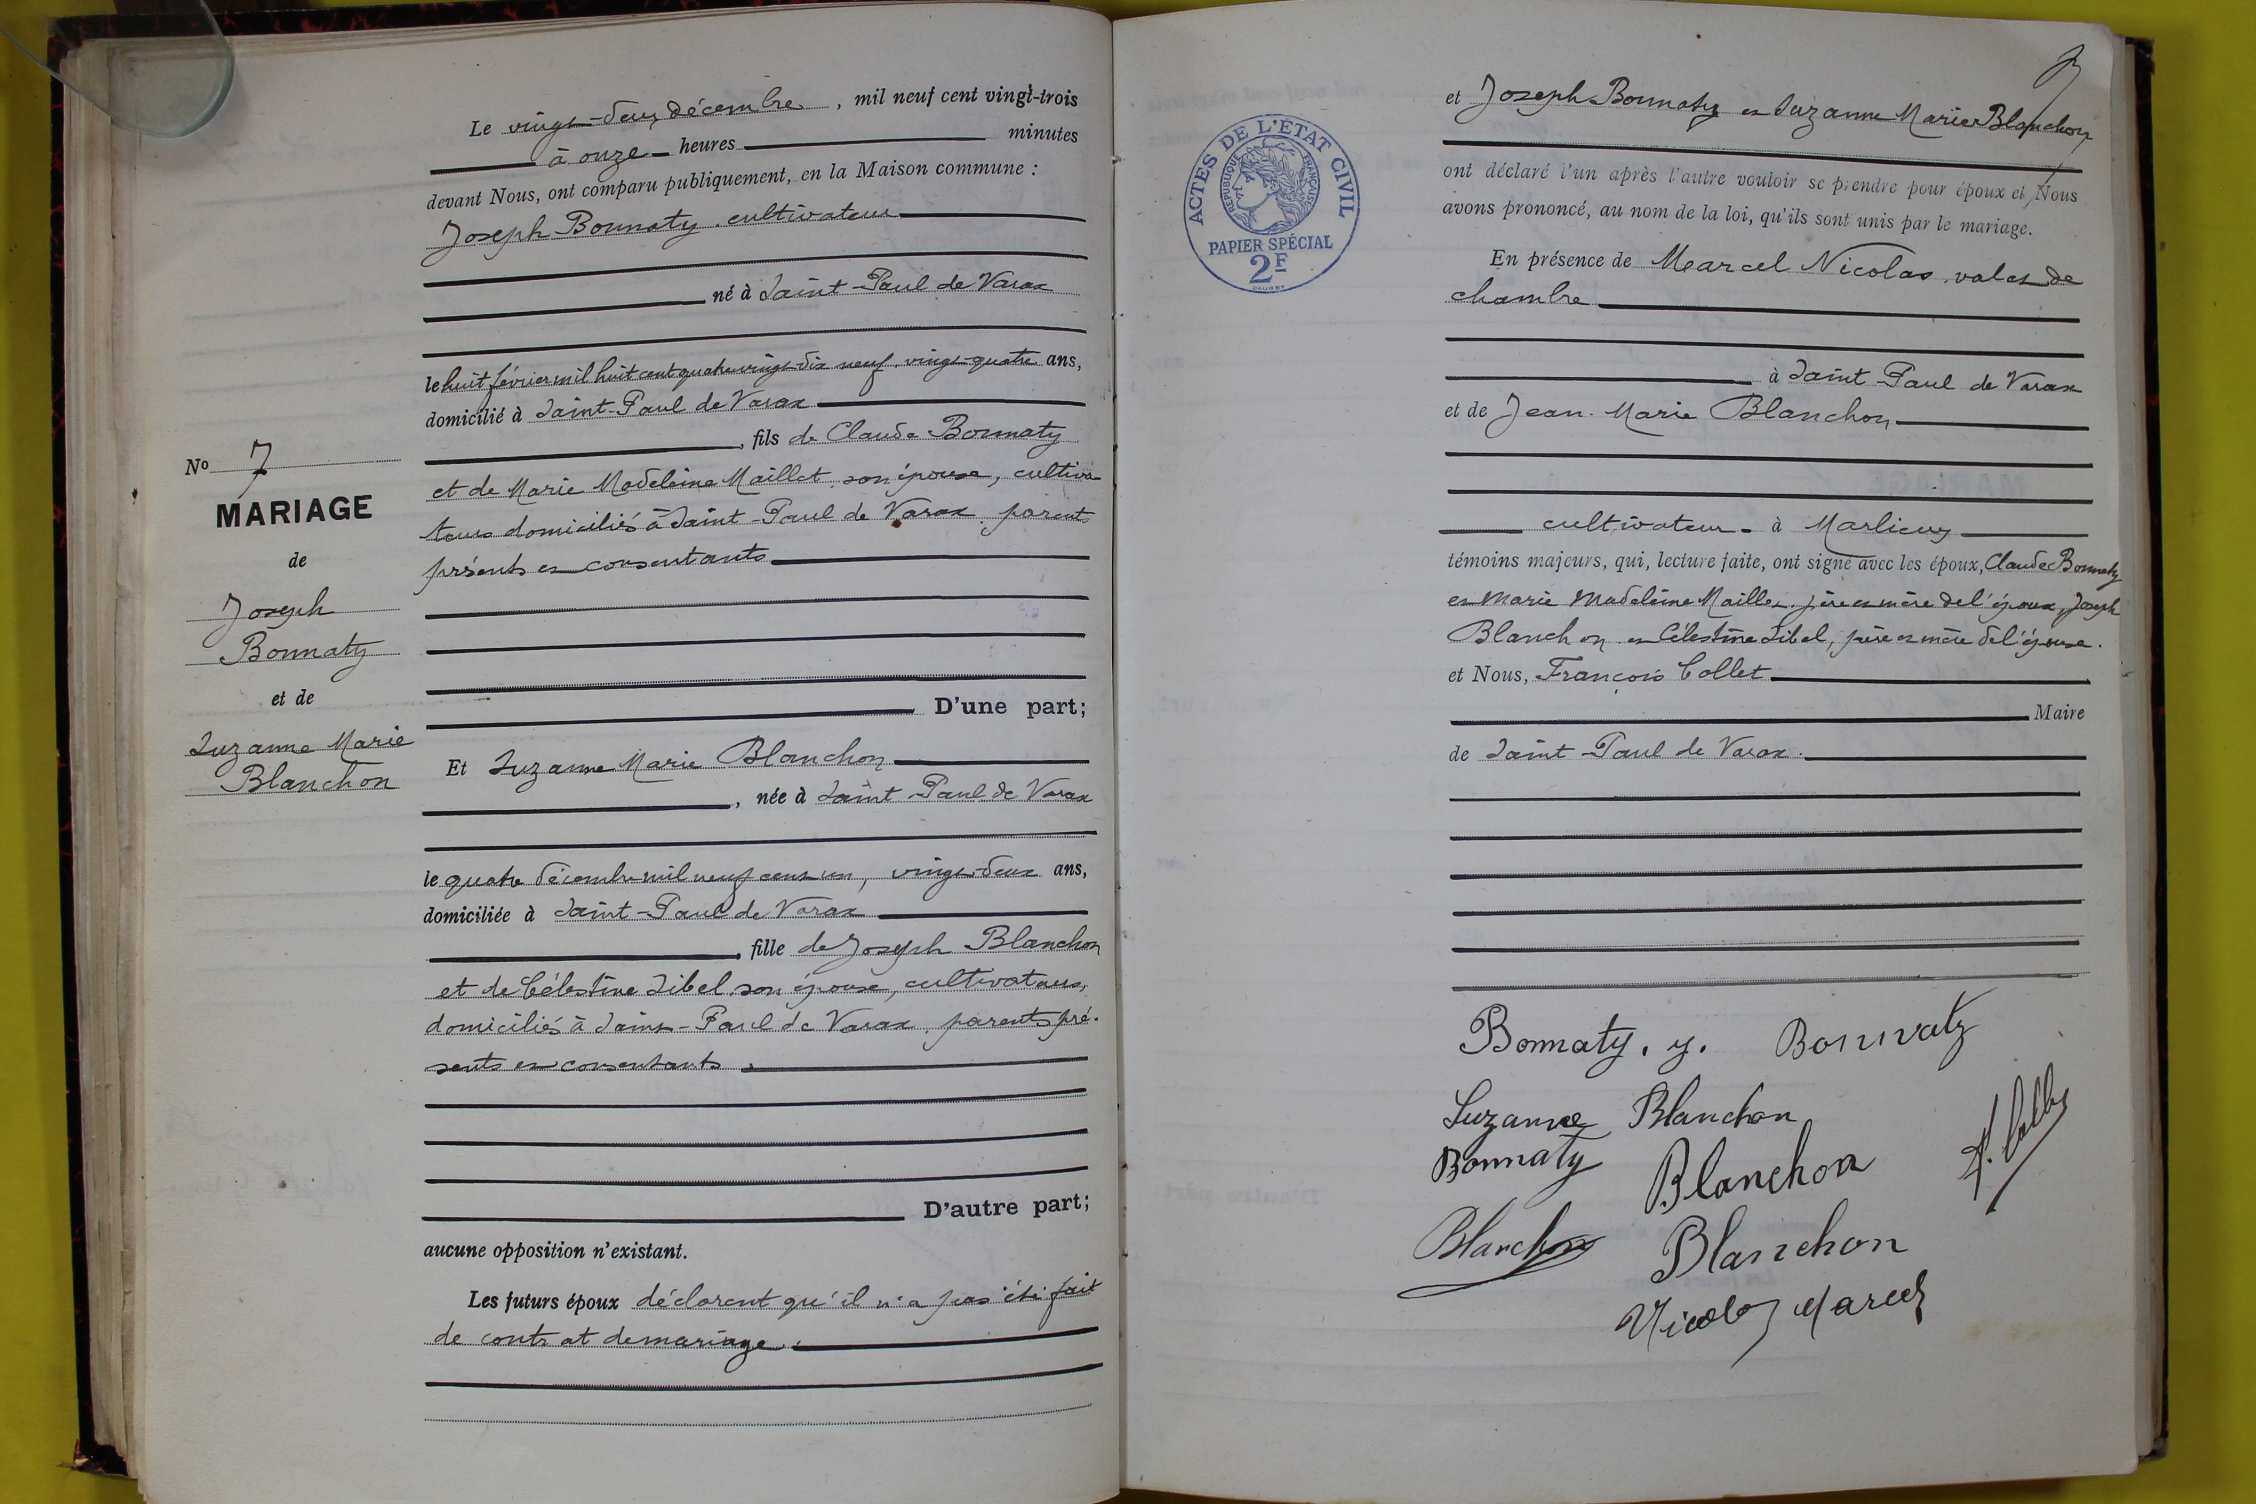 Le vingt-deux décembre, mil neuf cent vingt-trois
à onze heures minutes
devant Nous, ont comparu publiquement, en la Maison commune :
Joseph Bonnaty, cultivateur
né à Saint-Paul de Varax
le huit février mil huit cent quatre vingt dix neuf, vingt-quatre ans,
domicilié à Saint-Paul de Varax
, fils de Claude Bonnaty
et de Marie Madeleine Maillet, son épouse, cultiva
teurs domiciliés à Saint-Paul de Varax, parents
présents et consentants
No 7
MARIAGE
de
Joseph
Bonnaty
et de
Suzanne Marie
Blanchon
D'une part;
Et Suzanne Marie Blanchon
, née à Saint Paul de Varax
le quatre décembre mil neuf cent un, vingt-deux ans,
domiciliée à Saint-Paul de Varax
, fille de Joseph Blanchon
et de Célestine Sibel, son épouse, cultivateurs,
domiciliés à Saint-Paul de Varax, parents pré-
sents et consentants.
D'autre part;
aucune opposition n'existant.
Les futurs époux déclarent qu'il n'a pas été fait
de contrat de mariage.
ACTES DE L'ETAT CIVIL
REPUBLIQUE FRANÇAISE
PAPIER SPÉCIAL
2F
et Joseph Bonnaty et Suzanne Marie Blanchon
ont déclaré l'un après l'autre vouloir se prendre pour époux et Nous
avons prononcé, au nom de la loi, qu'ils sont unis par le mariage.
En présence de Marcel Nicolas, valet de
chambre
à Saint Paul de Varax
et de Jean-Marie Blanchon
cultivateur à Marlieux
témoins majeurs, qui, lecture faite, ont signé avec les époux, Claude Bonnaty
et Marie Madeleine Maillet, père et mère de l'époux, Joseph
Blanchon et Célestine Sibel, père et mère de l'épouse.
et Nous, François Collet
Maire
de Saint-Paul de Varax.
Bonnaty. y. Bonnaty
Suzanne Blanchon
Bonnaty Blanchon F. Collet
Blanchon Blanchon
Nicolas Marcel